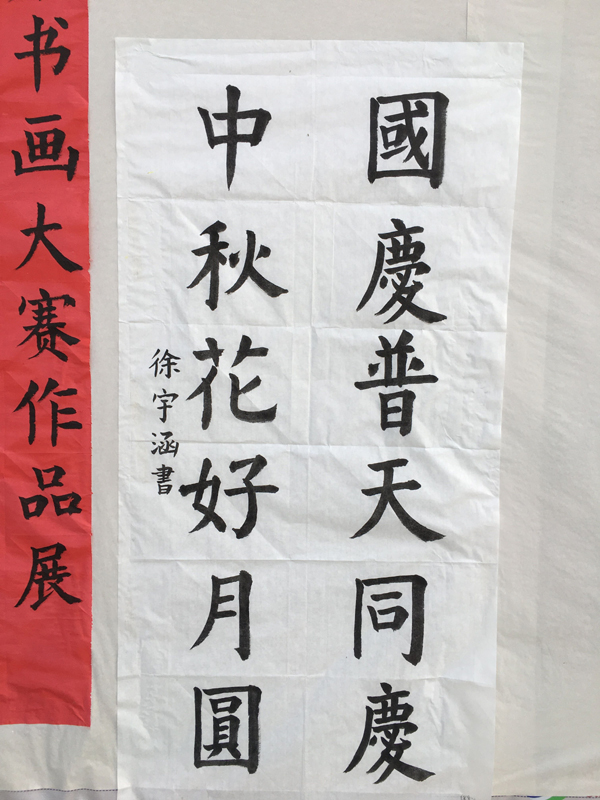 國慶普天同慶
中秋花好月圓
徐宇涵書
书画大赛作品展